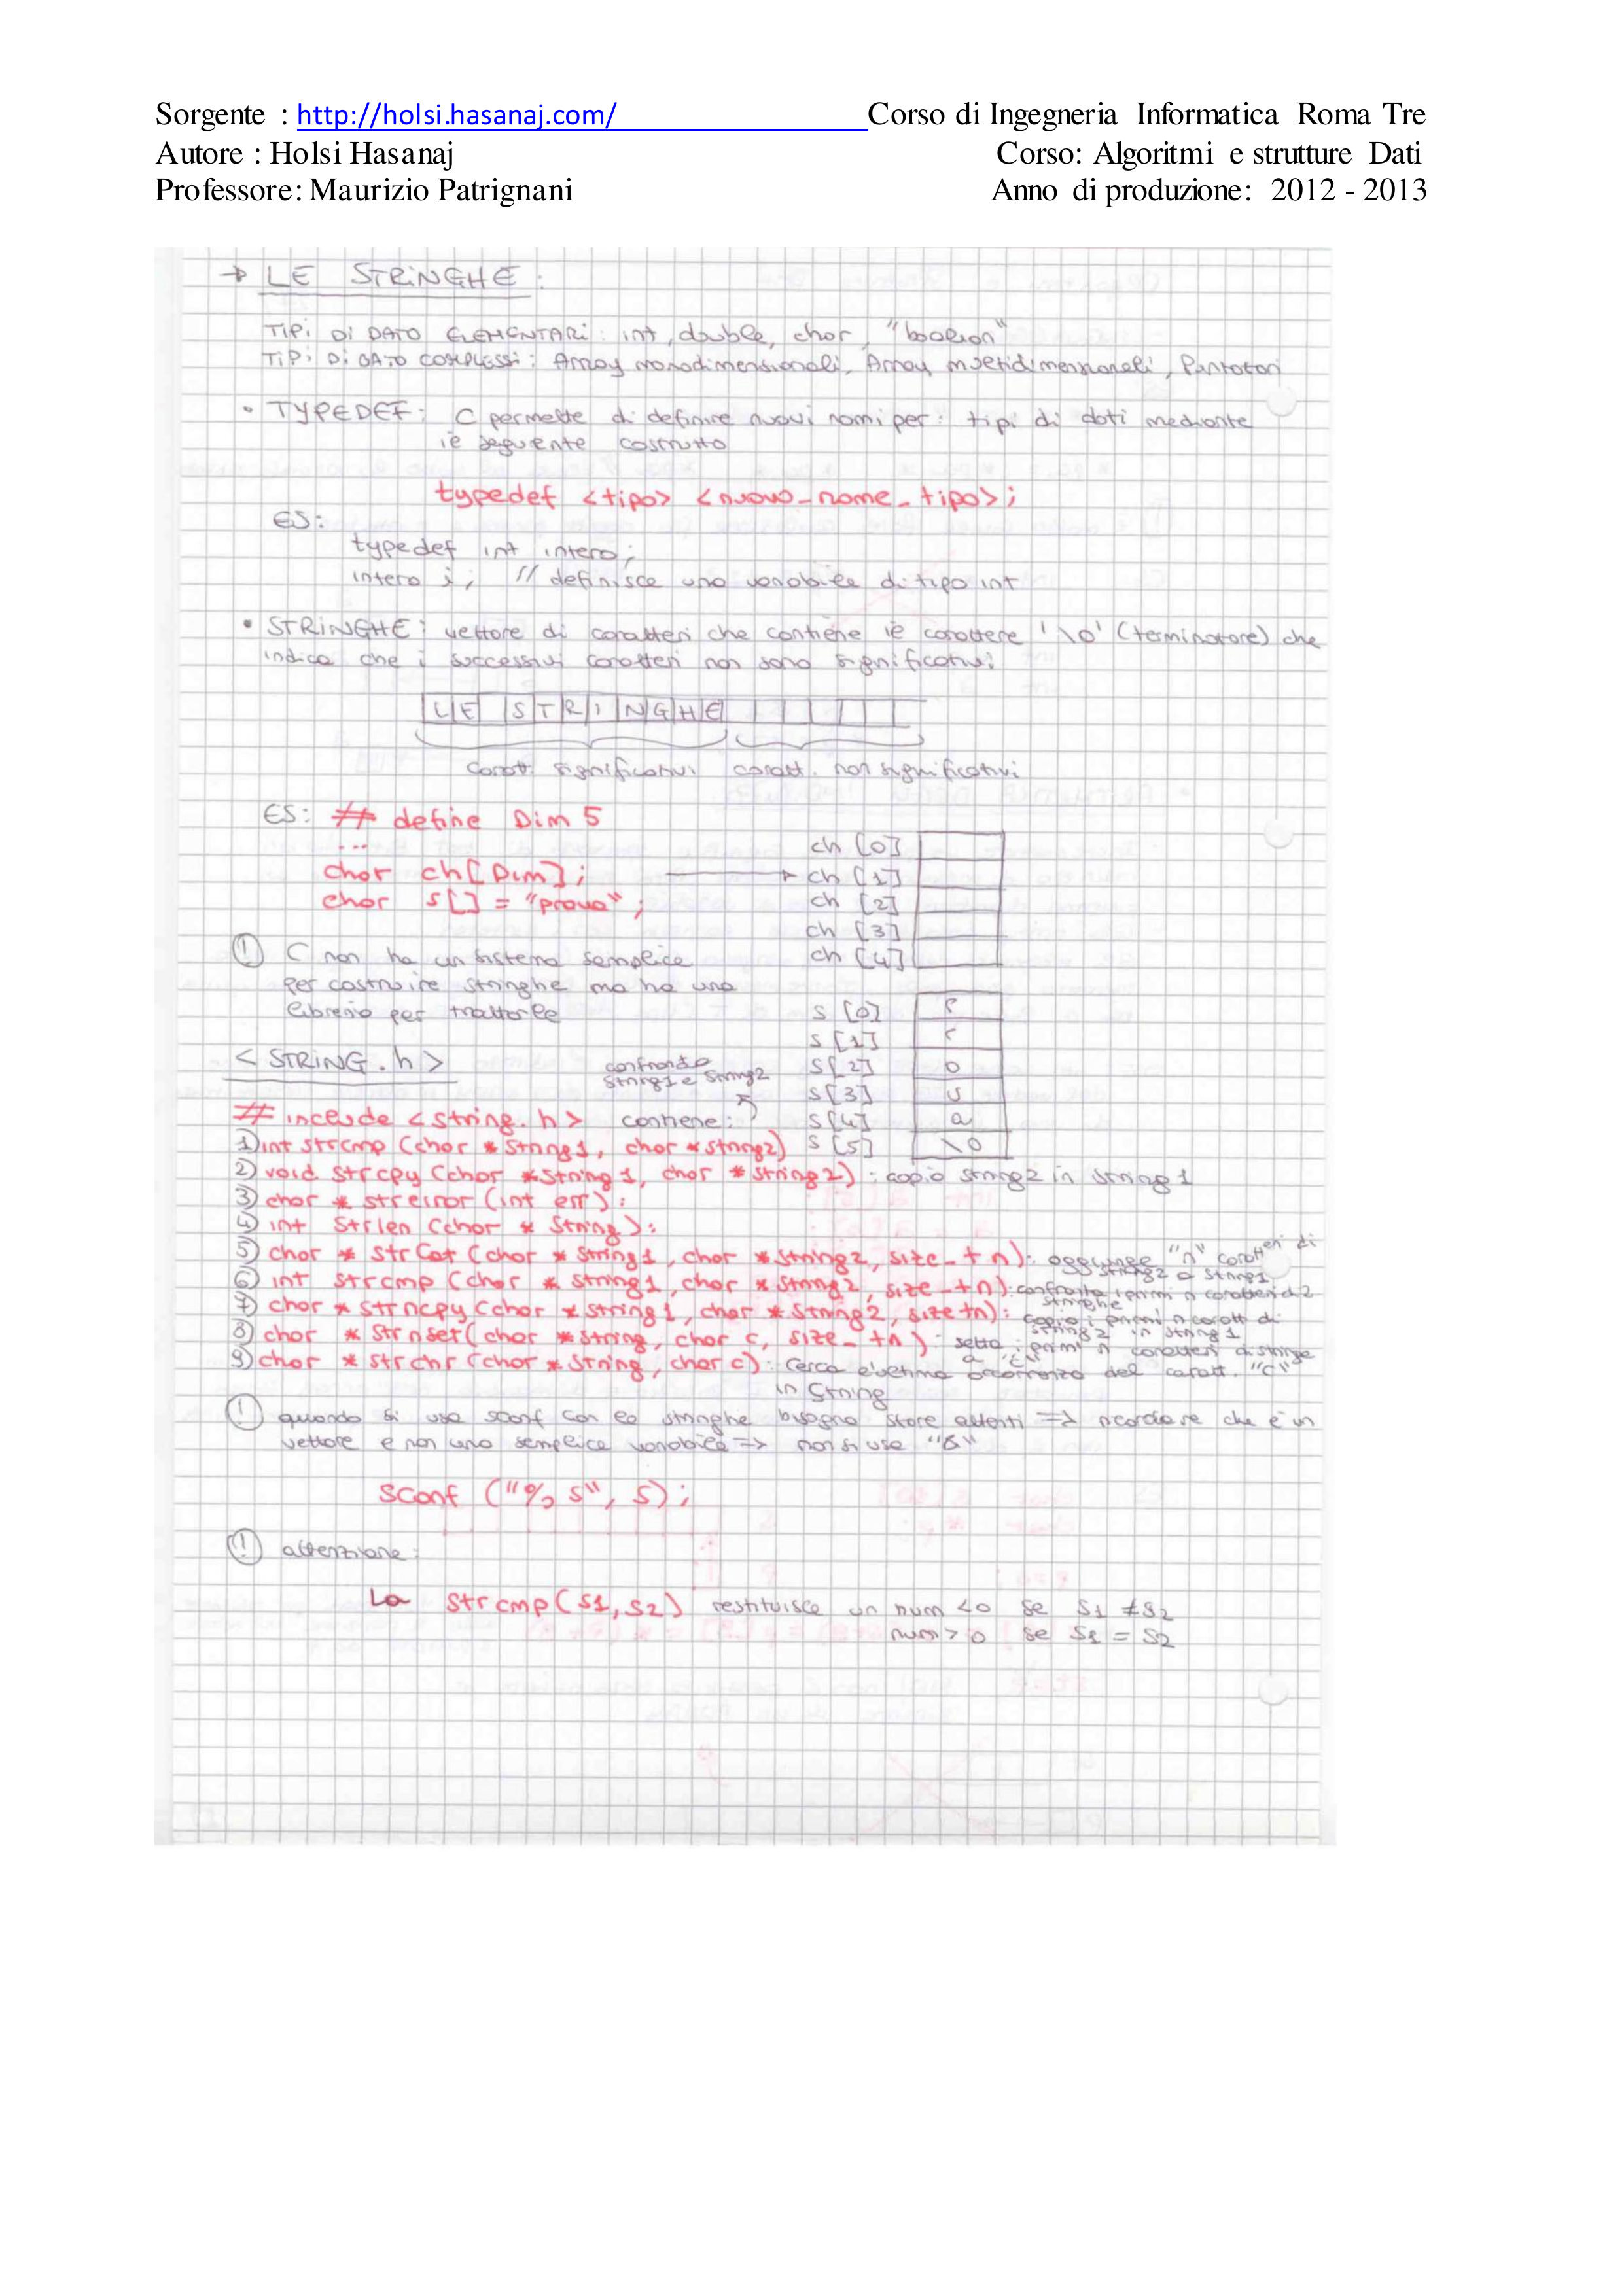 Sorgente : http://holsi.hasanaj.com/ Corso di Ingegneria Informatica Roma Tre
Autore : Holsi Hasanaj Corso: Algoritmi e strutture Dati
Professore: Maurizio Patrignani Anno di produzione: 2012 - 2013
→ LE STRINGHE:
TIPI DI DATO ELEMENTARI: int, double, char, "boolean"
TIPI DI DATO COMPLESSI: Array monodimensionali, Array multidimensionali, Puntatori
• TYPEDEF: C permette di definire nuovi nomi per i tipi di dati mediante
il seguente costrutto
typedef <tipo> <nuovo_nome_tipo>;
ES:
typedef int intero;
intero i; // definisce una variabile di tipo int
• STRINGHE: vettore di caratteri che contiene il carattere '\0' (terminatore) che
indica che i successivi caratteri non sono significativi
LE STRINGHE
caratt. significativi caratt. non significativi
ES: # define Dim 5
...
char ch[Dim];
char s[] = "prova";
ch [0]
ch [1]
ch [2]
ch [3]
ch [4]
(!) C non ha un sistema semplice
per costruire stringhe ma ha una
libreria per trattarle
s [0] P
s [1] r
s[2] o
s[3] v
s[4] a
s [5] \0
< STRING.h >
confronta
string1 e string2
# include <string.h> contiene:
1) int strcmp (char *string1, char *string2)
2) void strcpy (char *string1, char *string2): copia string2 in string1
3) char * strerror (int err):
4) int strlen (char * string):
5) char * strcat (char * string1, char *string2, size_t n): aggiunge "n" caratteri di
string2 a string1
6) int strcmp (char * string1, char * string2, size_t n): confronta i primi n caratteri di 2
stringhe
7) char * strncpy (char *string1, char * string2, size t n): copia i primi n caratt di
string2 in string1
8) char * strnset (char *string, char c, size_t n): setta i primi n caratteri di stringe
a "c"
9) char * strchr (char * string, char c): cerca l'ultima occorrenza del caratt. "c"
in string
(!) quando si usa scanf con le stringhe bisogna stare attenti => ricordare che è un
vettore e non una semplice variabile => non si usa "&"
scanf ("%s", s);
(!) attenzione:
La strcmp(s1,s2) restituisce un num <0 se s1 ≠ s2
num > 0 se s1 = s2